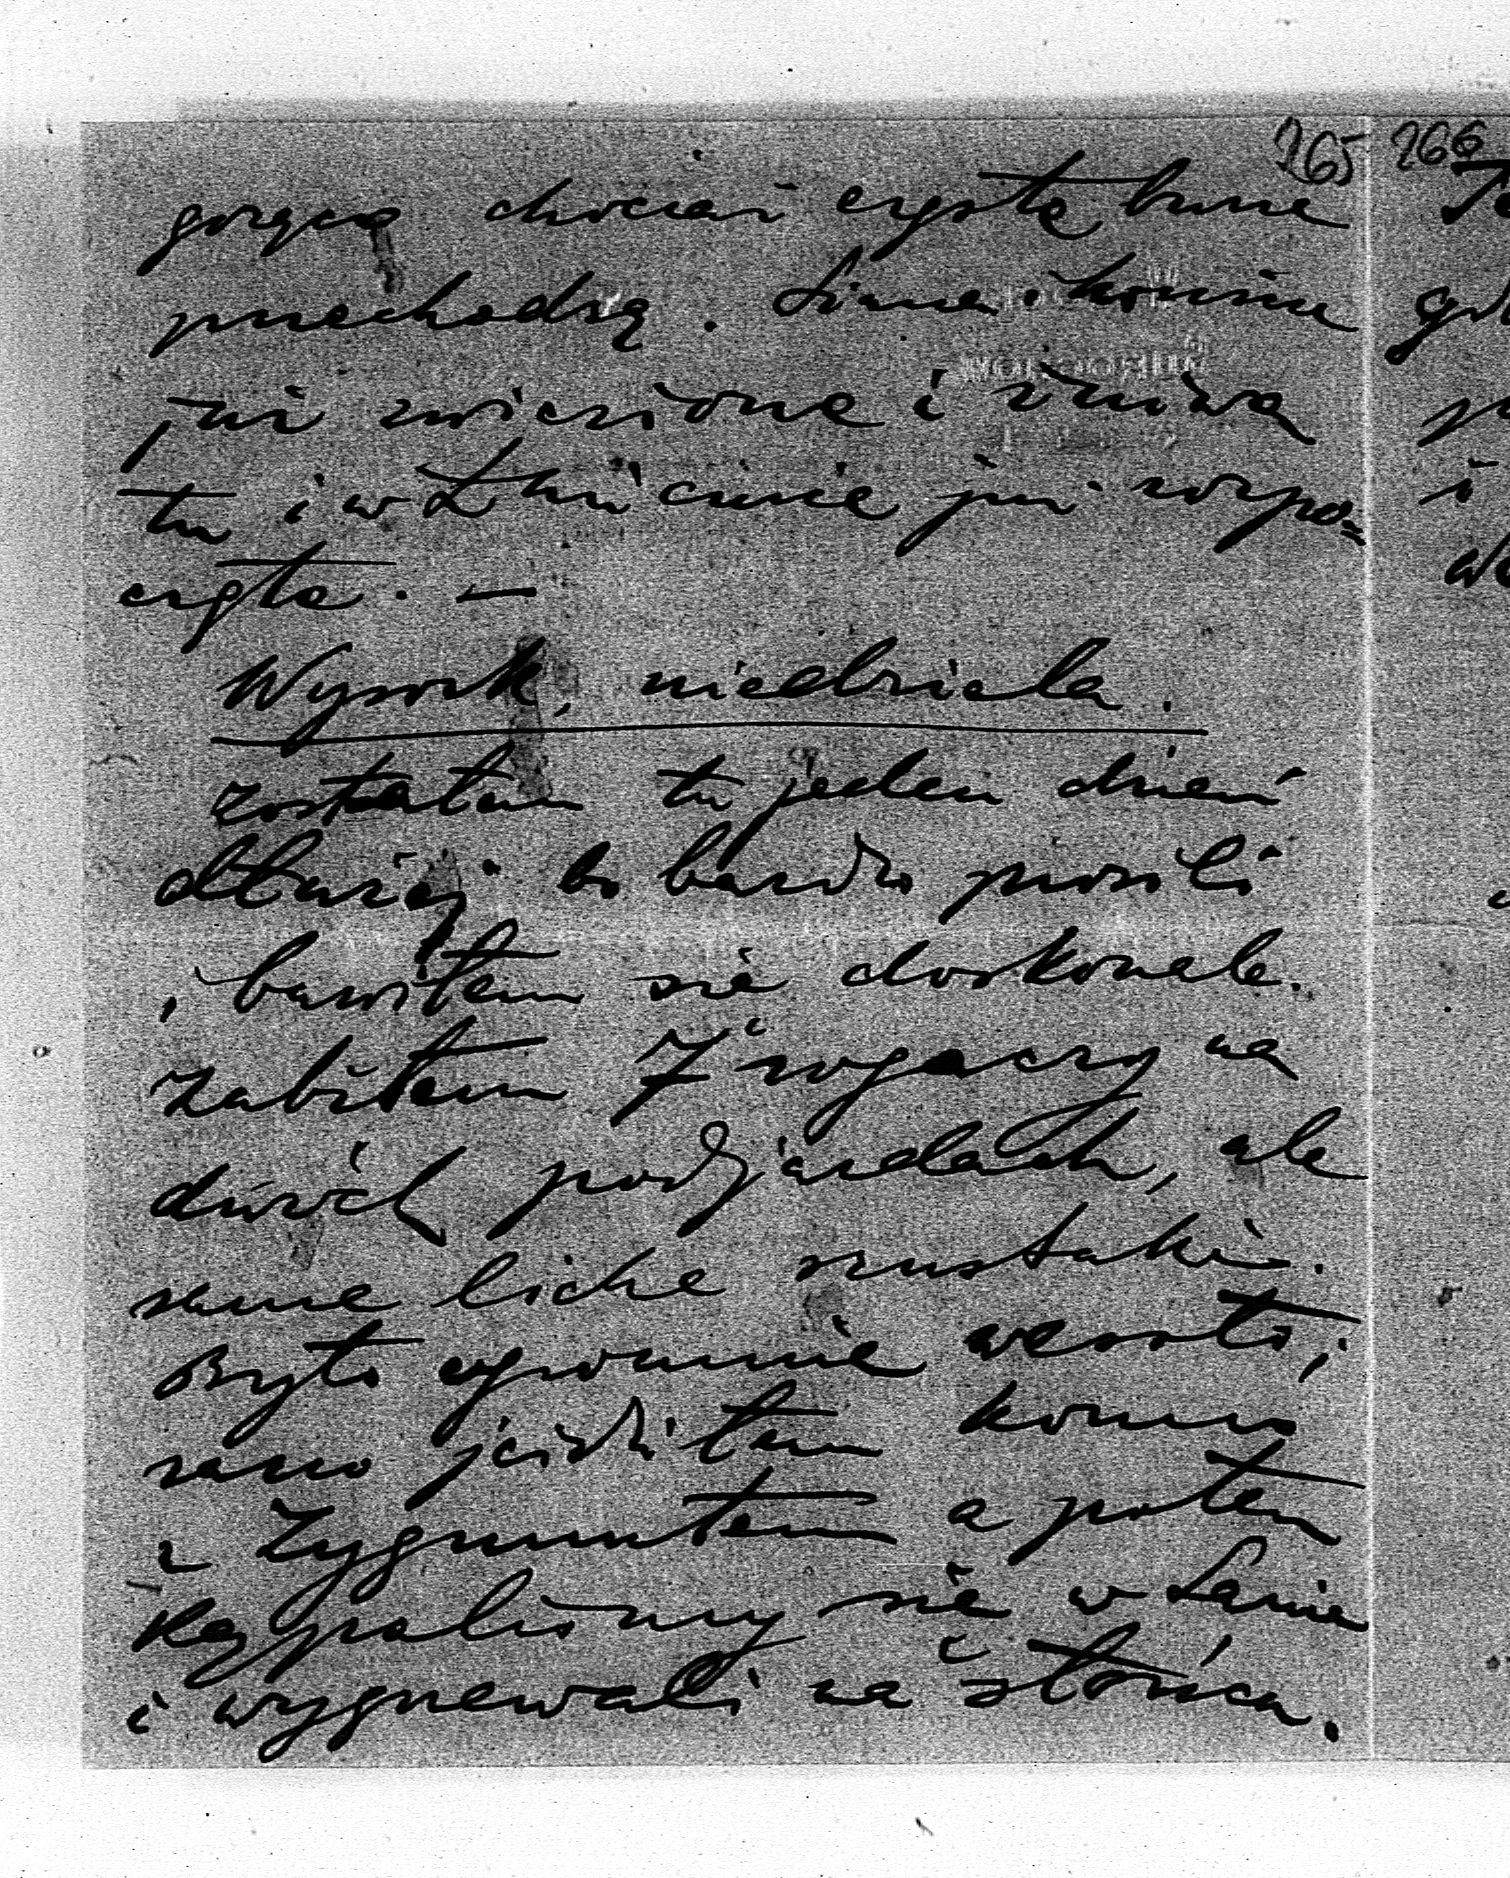 265 266
gorąco chociaż częste burze
przechodzą. Siana i koniczu
już zwiezione i żniwa
tu i w Łańcucie już rozpo=
częte. —
Wysock, niedziela.
Zostałam tu jeden dzień
dłużej bo bardzo prosili
i bawiłem się doskonale.
Zabiłem 7 rogaczy na
dwóch podjazdach, ale
same liche szustaki.
Było ogromnie wesoło;
rano jeździłem konno
z Zygmuntem a potem
kąpaliśmy się w Sanie
i wygrzewali na słońcu.